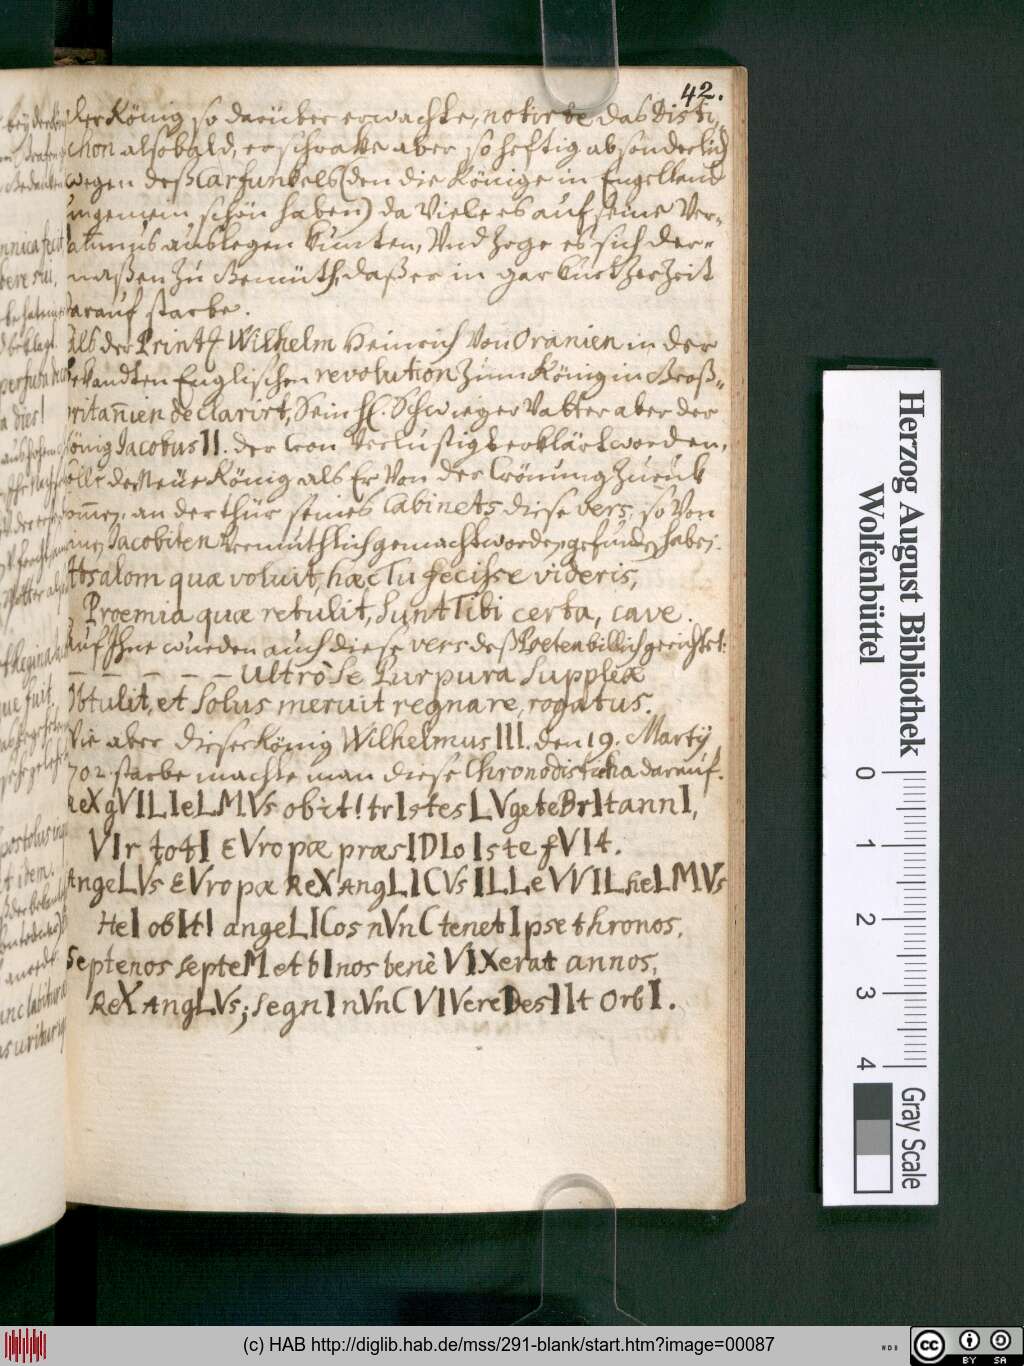 42.
der König so darüber erwachte, notirte das Disti,
chon alsobald, erschrake aber so heftig absonderlich
wegen deß Carfunkels (den die Könige in Engelland
ungemein schön haben) da Viele es auf seine Ver-
auslegen kunten, Und zoge es sich der-
maßen zu Gemüth, daß er in gar kurtzer Zeit
darauf starbe.
Als der Printz Wilhelm Heinrich Von Oranien in der
bekandten Englischen revolution zum König in Groß-
britañien declarirt, Sein H. Schwieger Vatter aber der
König Jacobus II. der Cron Verlustigt erklärt worden,
solle der Neue König als Er Von der Crönung zurück
kom̄en, an der thür seines Cabinets diese vers, so Von
Jacobiten vermuthlich gemacht worden, gefunden haben.
Absalom quæ voluit, hæc Tu fecisse videris,
Proemia quæ retulit, Sunt Tibi certa, cave.
Auf Ihne wurden auch diese vers deß Poeten billich gerichtet:
– – – – – Ultrò Se Purpura Supplex
Obtulit, et Solus meruit regnare, rogatus.
Wie aber dieser König Wilhelmus III. den 19. Martÿ
1702. starbe machte man diese Chronodisticha darauf.
ReX gVILIeLMVs obit! trIstes LVgete BrItannI,
VIr totI EVropæ præsIDIo Iste fVIt.
AngeLVs EVropæ ReX AngLICVs ILLe VVILheLMVs
HeI obItI angeLICos nVnC tenet Ipse thronos.
Septenos septeM et bInos benè VIXerat annos,
ReX AngLVs; segnI nVnC VIVere DesIIt OrbI.
Herzog August Bibliothek
Wolfenbüttel
0 1 2 3 4
Gray Scale
(c) HAB http://diglib.hab.de/mss/291-blank/start.htm?image=00087
WDB
cc BY SA